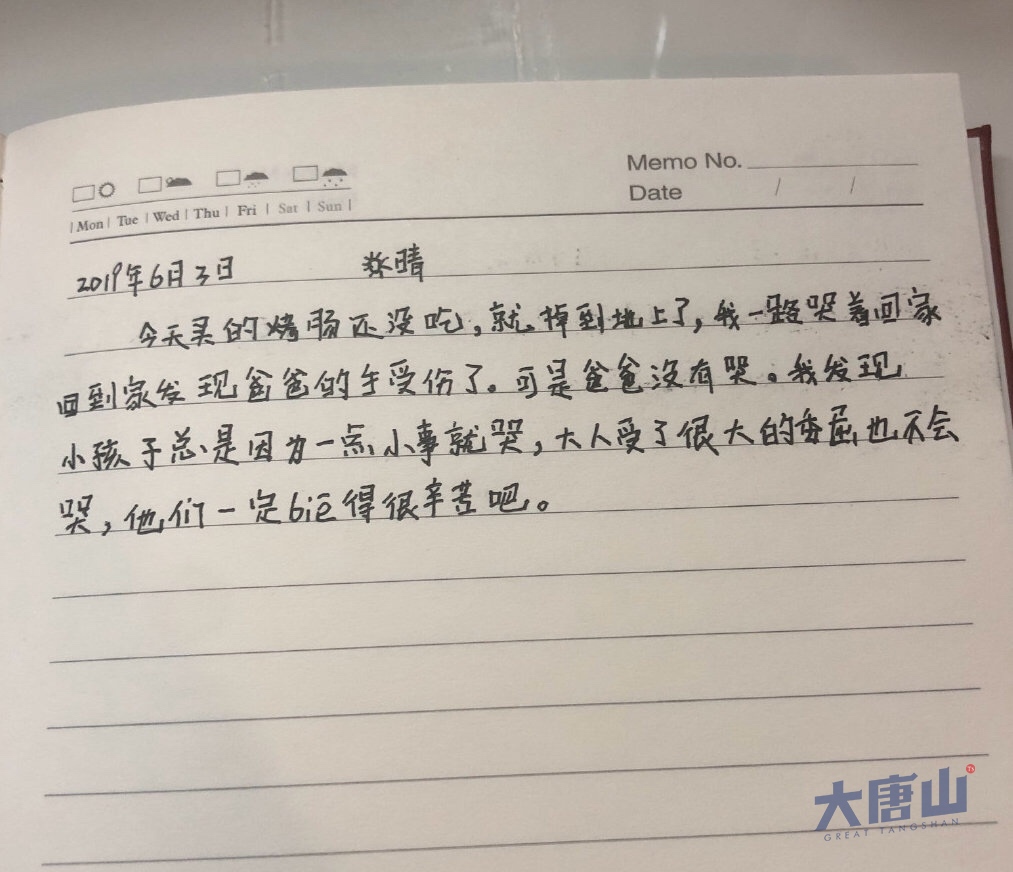 Memo No.
Date / /
Mon Tue Wed Thu Fri Sat Sun
2019年6月3日 晴
今天买的烤肠还没吃,就掉到地上了,我一路哭着回家
回到家发现爸爸的手受伤了。可是爸爸没有哭。我发现
小孩子总是因为一点小事就哭,大人受了很大的委屈也不会
哭,他们一定biē得很辛苦吧。
大唐山
GREAT TANGSHAN